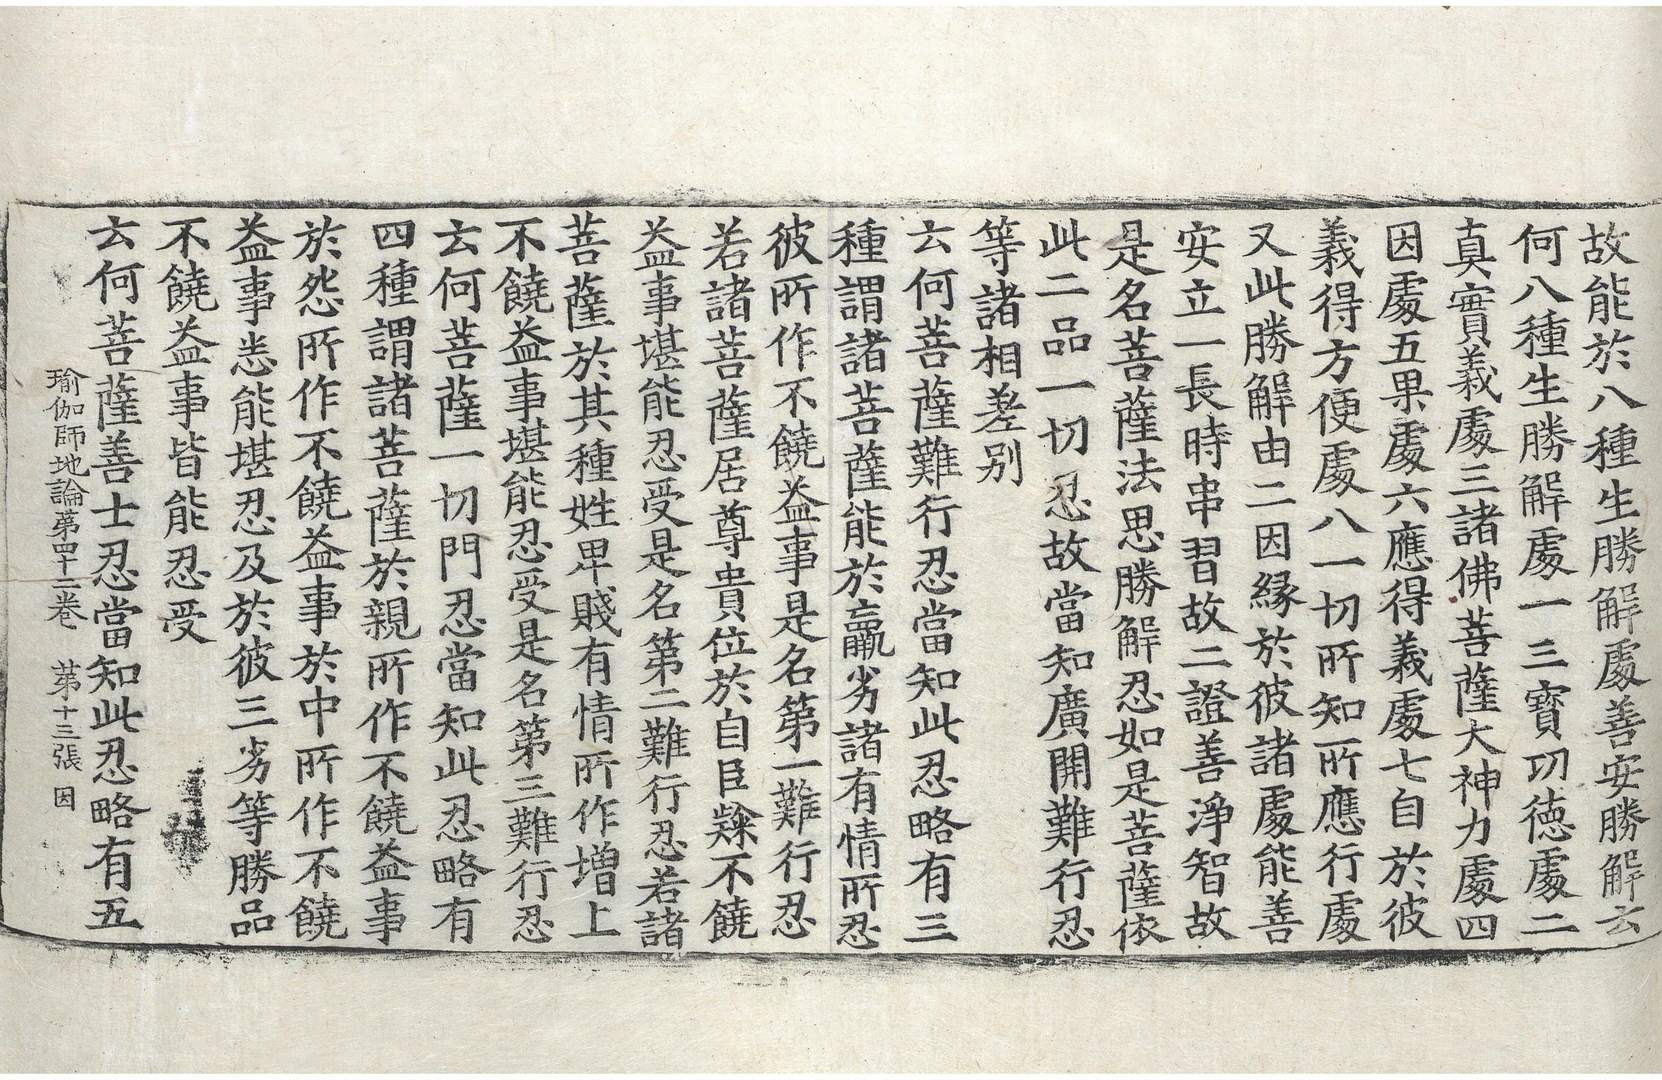 故能於八種生勝解處善安勝解云
何八種生勝解處一三寶功德處二
真實義處三諸佛菩薩大神力處四
因處五果處六應得義處七自於彼
義得方便處八一切所知所應行處
又此勝解由二因緣於彼諸處能善
安立一長時串習故二證善淨智故
是名菩薩法思勝解忍如是菩薩依
此二品一切忍故當知廣開難行忍
等諸相差別
云何菩薩難行忍當知此忍略有三
種謂諸菩薩能於羸劣諸有情所忍
彼所作不饒益事是名第一難行忍
若諸菩薩居尊貴位於自臣隸不饒
益事堪能忍受是名第二難行忍若諸
菩薩於其種姓卑賤有情所作增上
不饒益事堪能忍受是名第三難行忍
云何菩薩一切門忍當知此忍略有
四種謂諸菩薩於親所作不饒益事
於怨所作不饒益事於中所作不饒
益事悉能堪忍及於彼三劣等勝品
不饒益事皆能忍受
云何菩薩善士忍當知此忍略有五
瑜伽師地論第四十二卷 第十三張 因